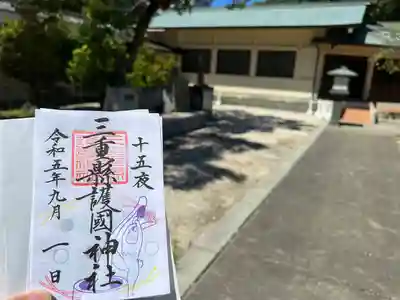 十五夜
三重縣護國神社
令和五年九月一日